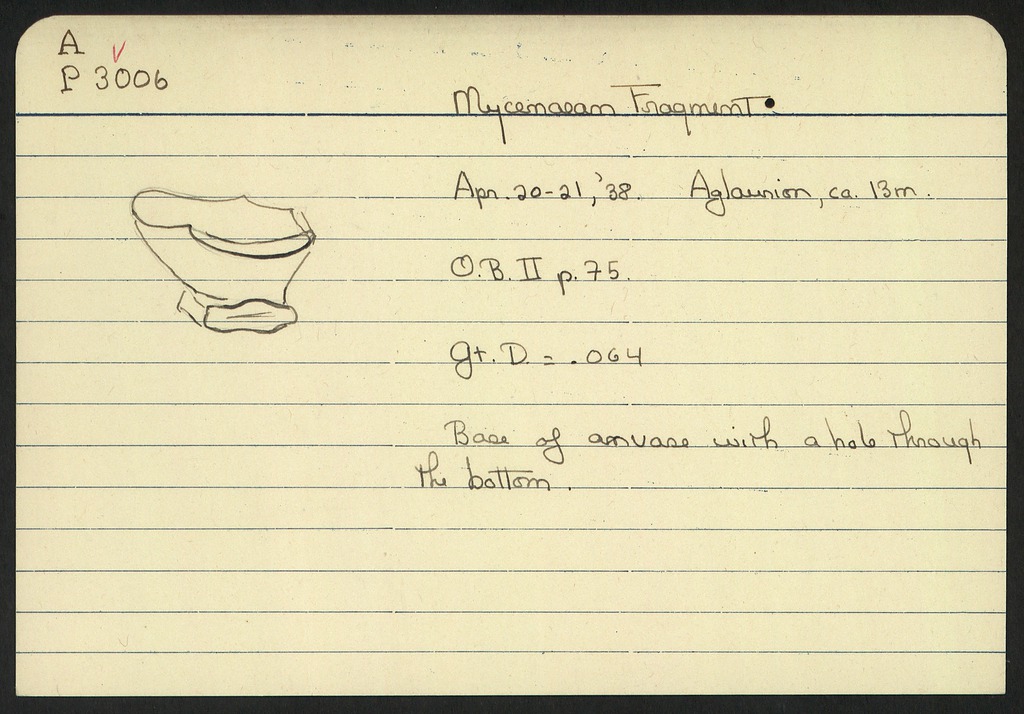 A
P 3006
Mycenaean Fragment.
Apr. 20-21, '38. Aglaurion, ca. 13m.
O.B. II p. 75.
Gt. D. = .064
Base of a vase with a hole through
the bottom.